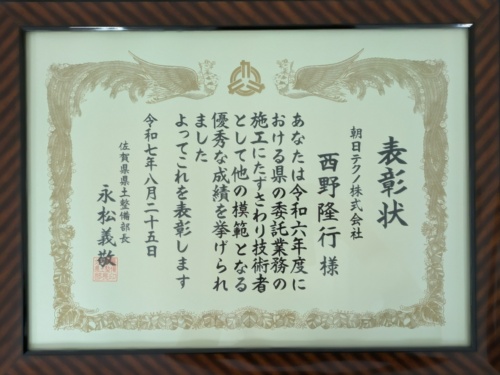 表彰状
朝日テクノ株式会社
西野隆行 様
あなたは令和六年度に
おける県の委託業務の
施工にたずさわり技術者
として他の模範となる
優秀な成績を挙げられ
ました
よってこれを表彰します
令和七年八月二十五日
佐賀県県土整備部長
永松義敬